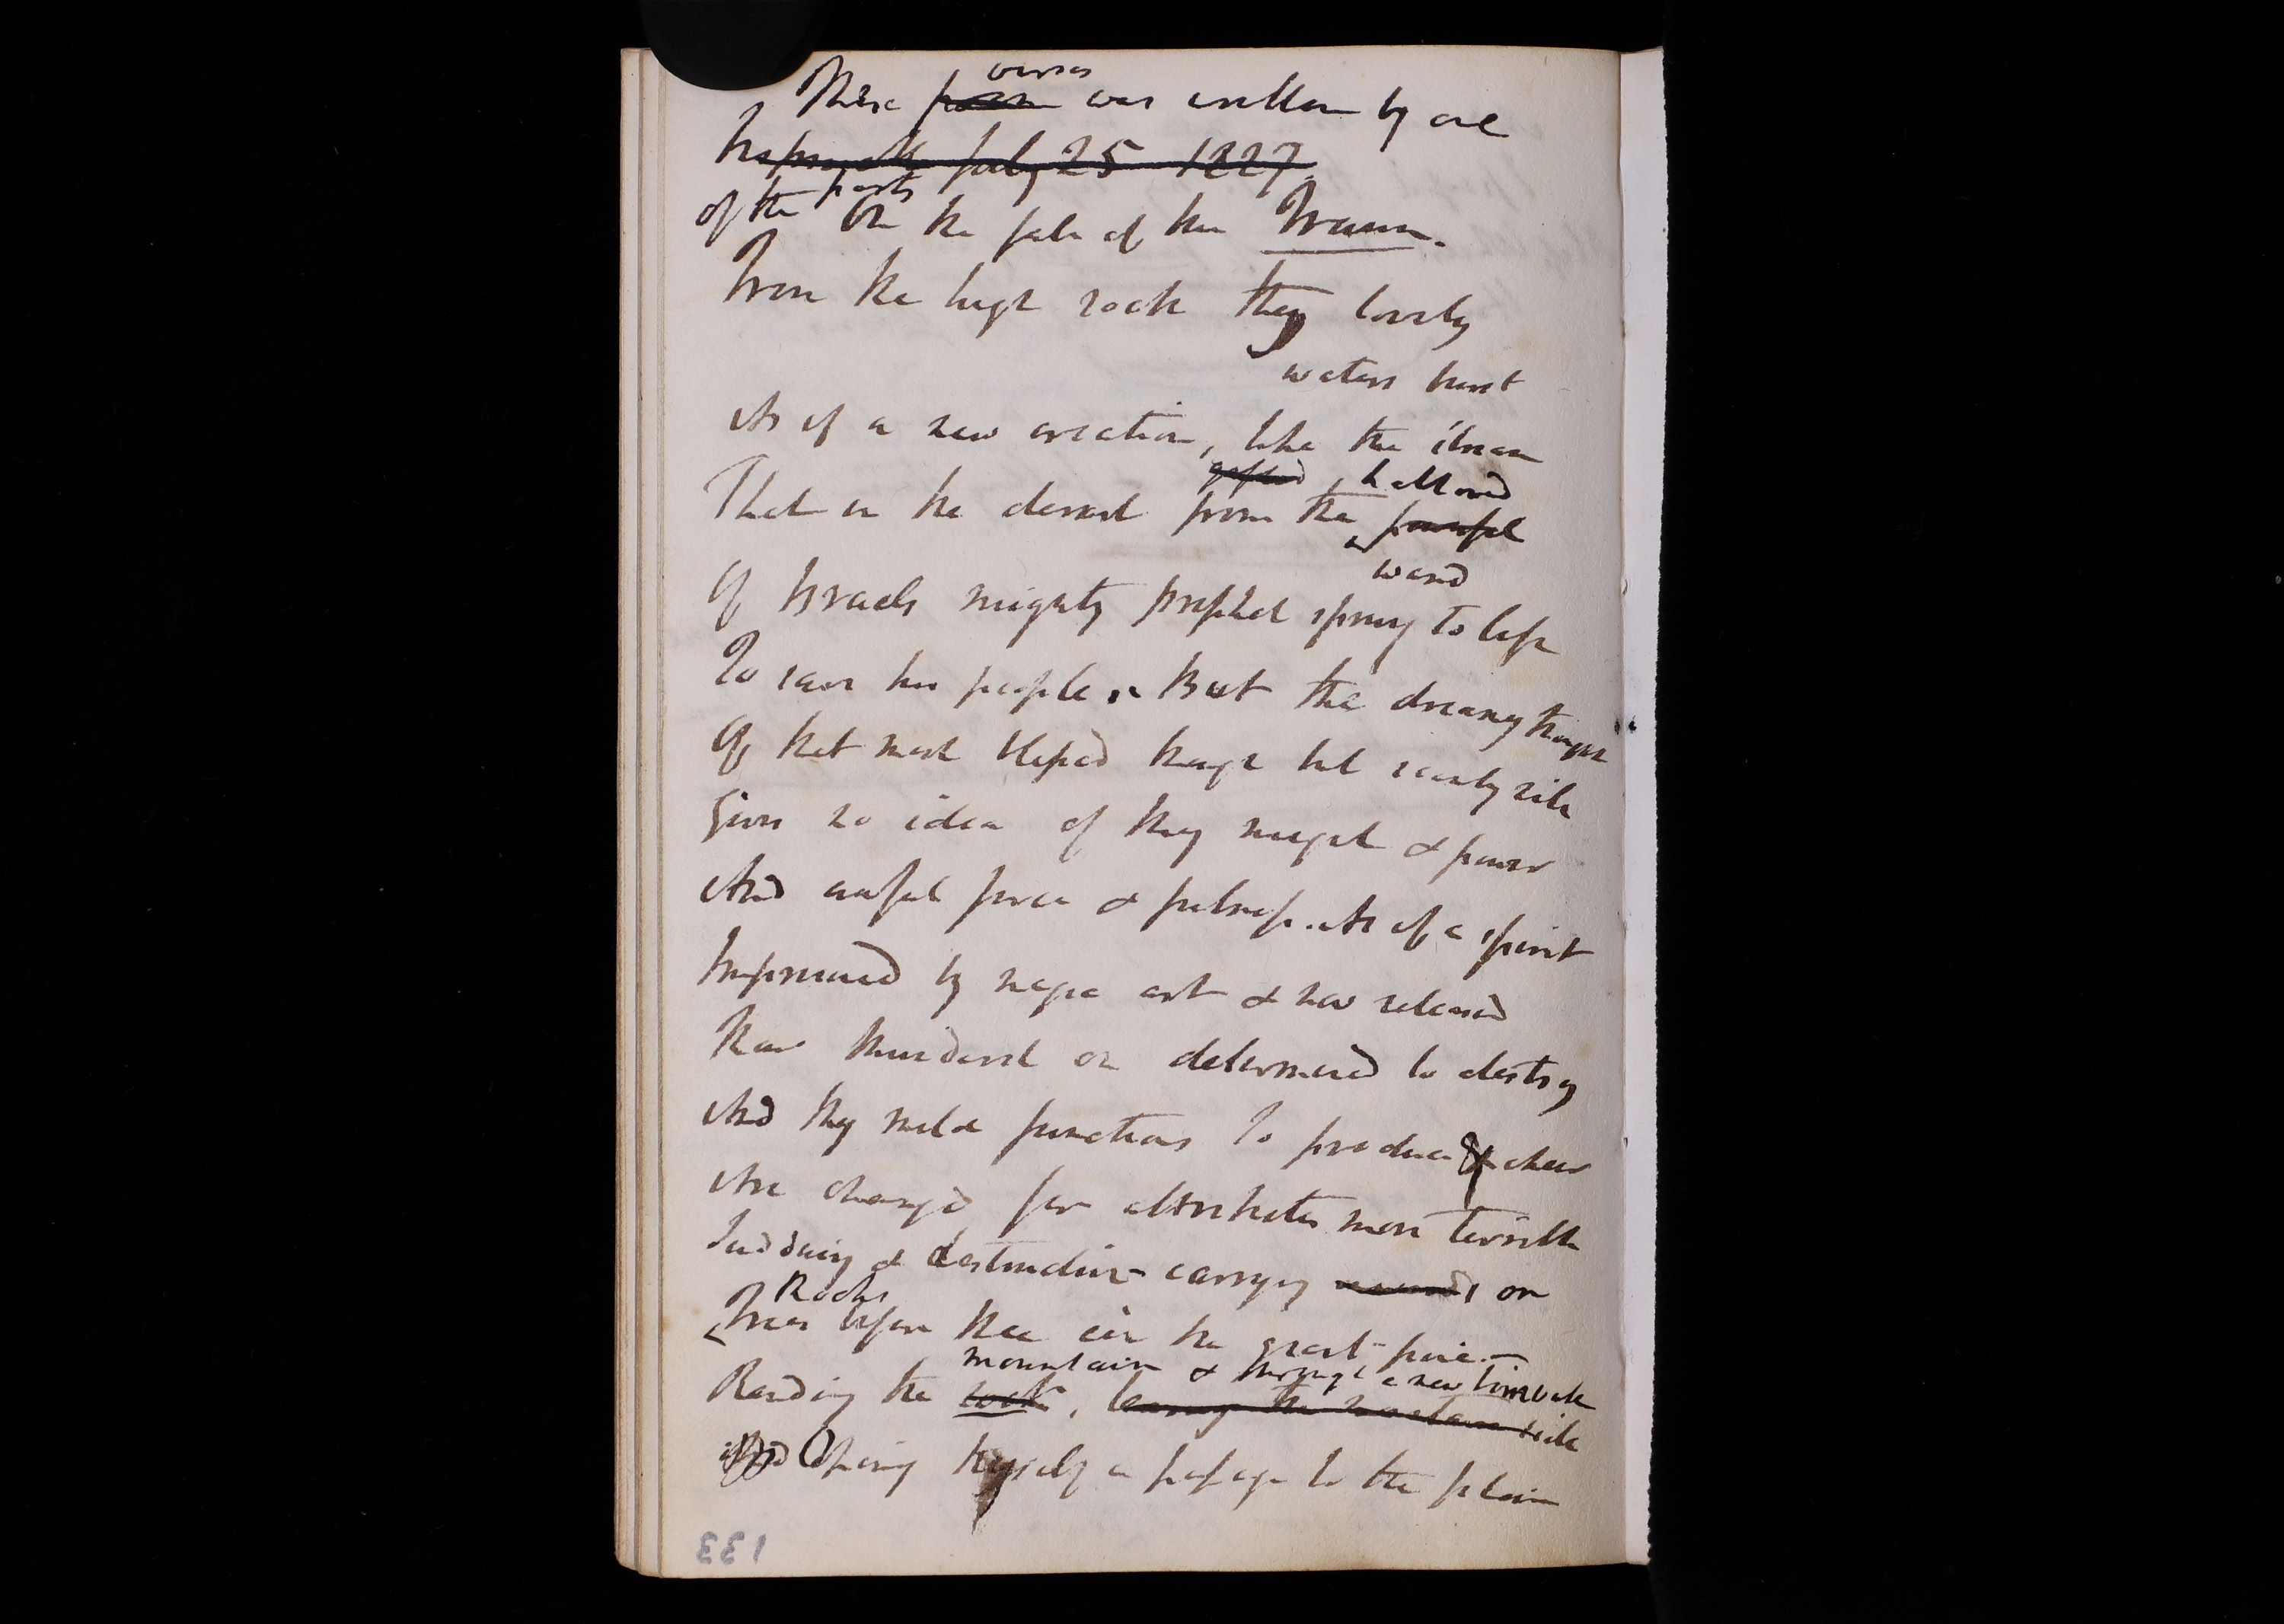 verses
These poem was written by one
Inspruck July 25 1827.
of the party On the fale of the Traun.
From the high rock they lovely
waters burst
As if a new creation, like the stream
gifted hallowed
That in the desert from the powerful
wand
Of Israels mighty prophet sprung to life
To save his people. But the dreamy though
Of that most blessed though but scanty rill
Gives no idea of thy might & power
And awful force & fulness. As if a spirit
Imprisoned by magic art & now released
Thou thunderest on determined to destroy
And thy mild functions to produce & chear
Are changed for attributes more terrible
Subduing & destructive carrying on
Rocks
Trees before thee in the great
mountain & through a new
Rending the rock, leaving the side
And Oping thyself a passage to the plain
133